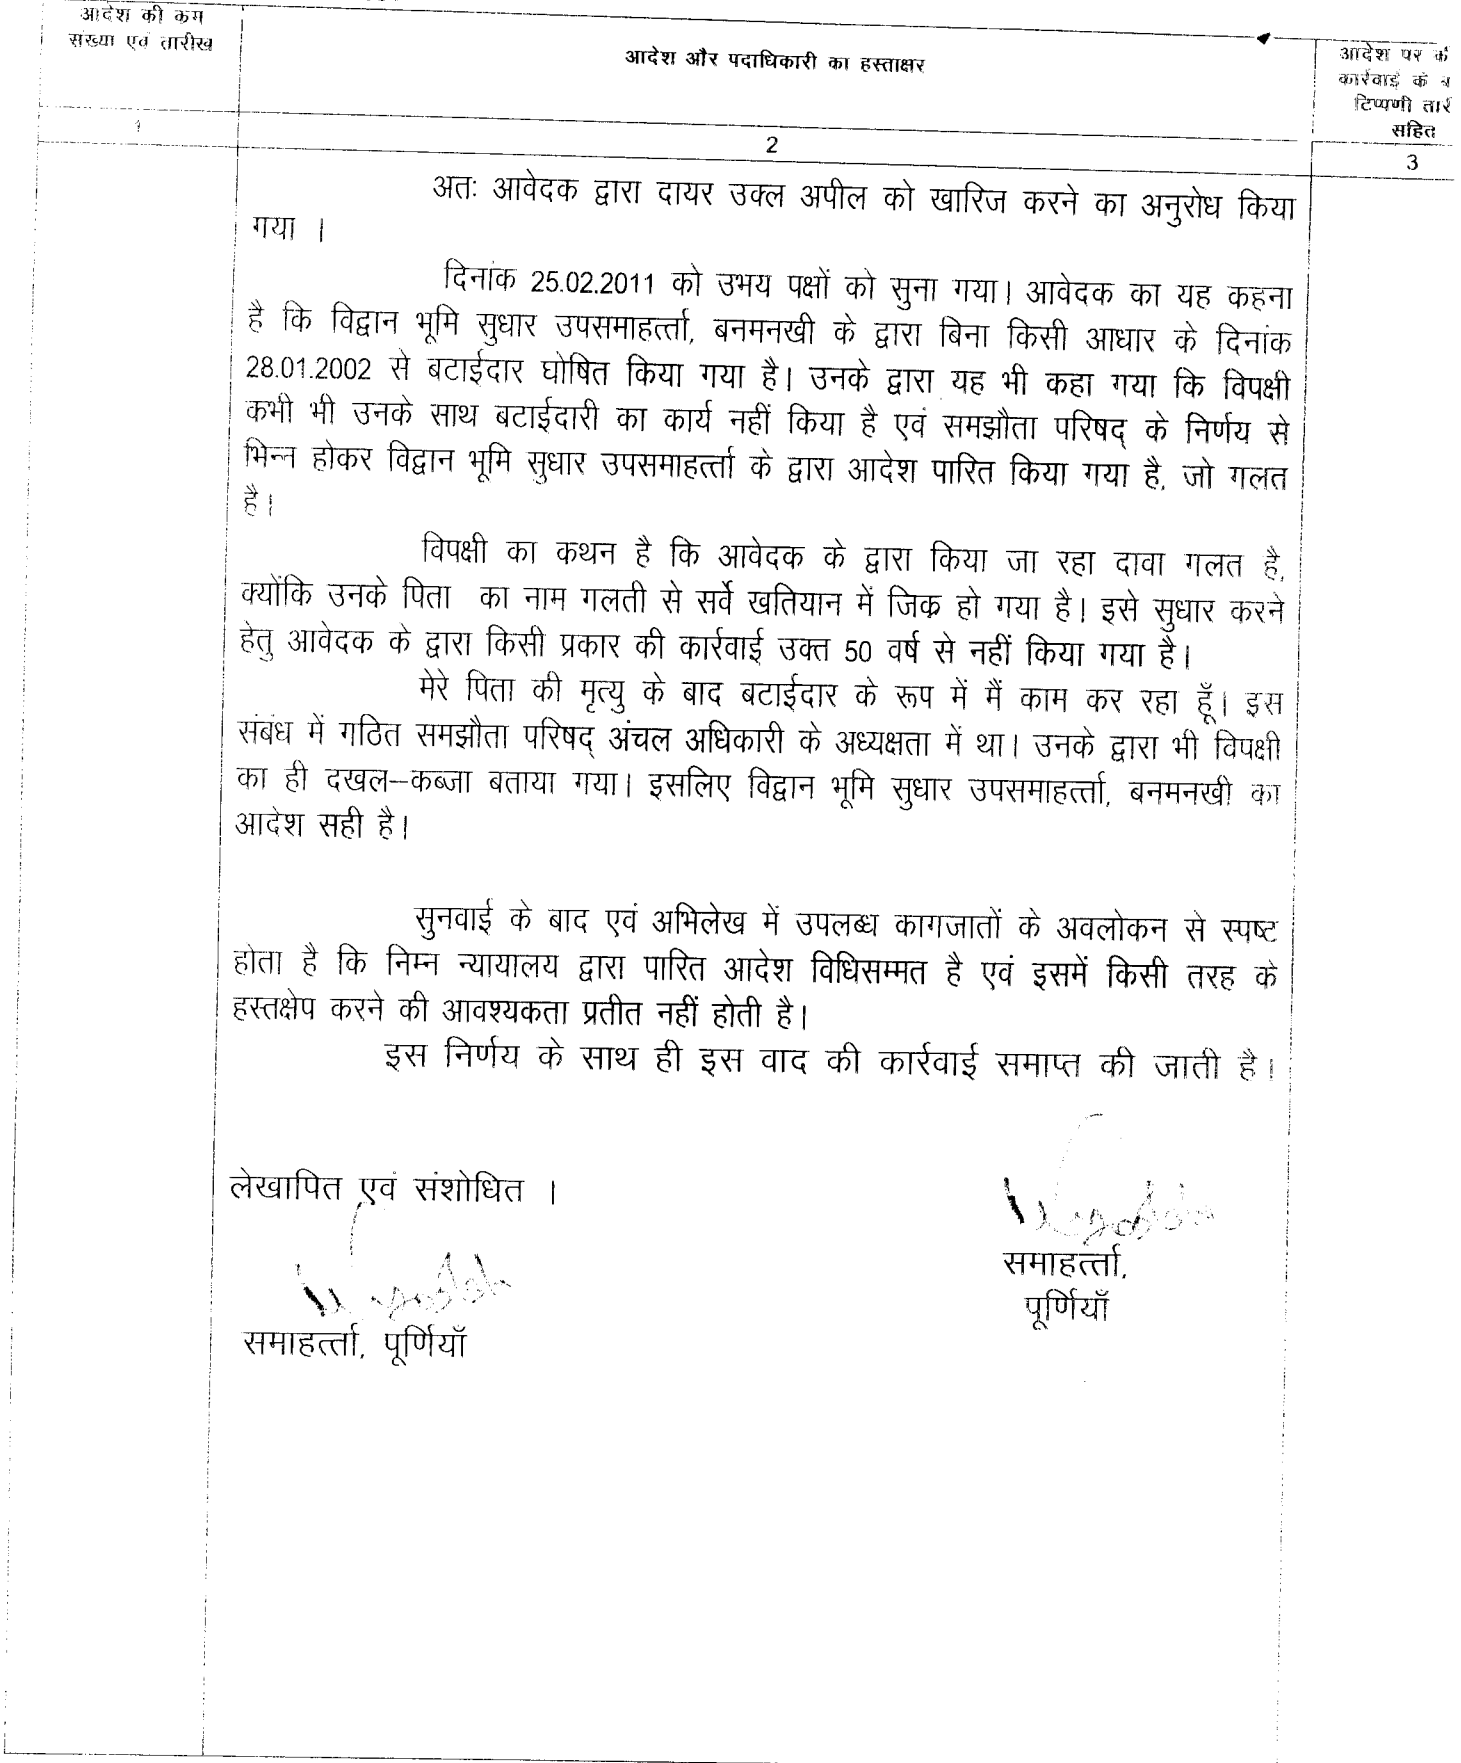 आदेश की कम
संख्या एवं तारीख
आदेश और पदाधिकारी का हस्ताक्षर
आदेश पर की
कार्रवाई के
टिप्पणी तारी
सहित
1
2
3
अतः आवेदक द्वारा दायर उक्ल अपील को खारिज करने का अनुरोध किया
गया ।
दिनांक 25.02.2011 को उभय पक्षों को सुना गया। आवेदक का यह कहना
है कि विद्वान भूमि सुधार उपसमाहर्त्ता, बनमनखी के द्वारा बिना किसी आधार के दिनांक
28.01.2002 से बटाईदार घोषित किया गया है। उनके द्वारा यह भी कहा गया कि विपक्षी
कभी भी उनके साथ बटाईदारी का कार्य नहीं किया है एवं समझौता परिषद् के निर्णय से
भिन्न होकर विद्वान भूमि सुधार उपसमाहर्त्ता के द्वारा आदेश पारित किया गया है, जो गलत
है।
विपक्षी का कथन है कि आवेदक के द्वारा किया जा रहा दावा गलत है,
क्योंकि उनके पिता का नाम गलती से सर्वे खतियान में जिक्र हो गया है। इसे सुधार करने
हेतु आवेदक के द्वारा किसी प्रकार की कार्रवाई उक्त 50 वर्ष से नहीं किया गया है।
मेरे पिता की मृत्यु के बाद बटाईदार के रूप में मैं काम कर रहा हूँ। इस
संबंध में गठित समझौता परिषद् अंचल अधिकारी के अध्यक्षता में था। उनके द्वारा भी विपक्षी
का ही दखल–कब्जा बताया गया। इसलिए विद्वान भूमि सुधार उपसमाहर्त्ता, बनमनखी का
आदेश सही है।
सुनवाई के बाद एवं अभिलेख में उपलब्ध कागजातों के अवलोकन से स्पष्ट
होता है कि निम्न न्यायालय द्वारा पारित आदेश विधिसम्मत है एवं इसमें किसी तरह के
हस्तक्षेप करने की आवश्यकता प्रतीत नहीं होती है।
इस निर्णय के साथ ही इस वाद की कार्रवाई समाप्त की जाती है।
लेखापित एवं संशोधित ।
समाहर्त्ता,
पूर्णियाँ
समाहर्त्ता, पूर्णियाँ